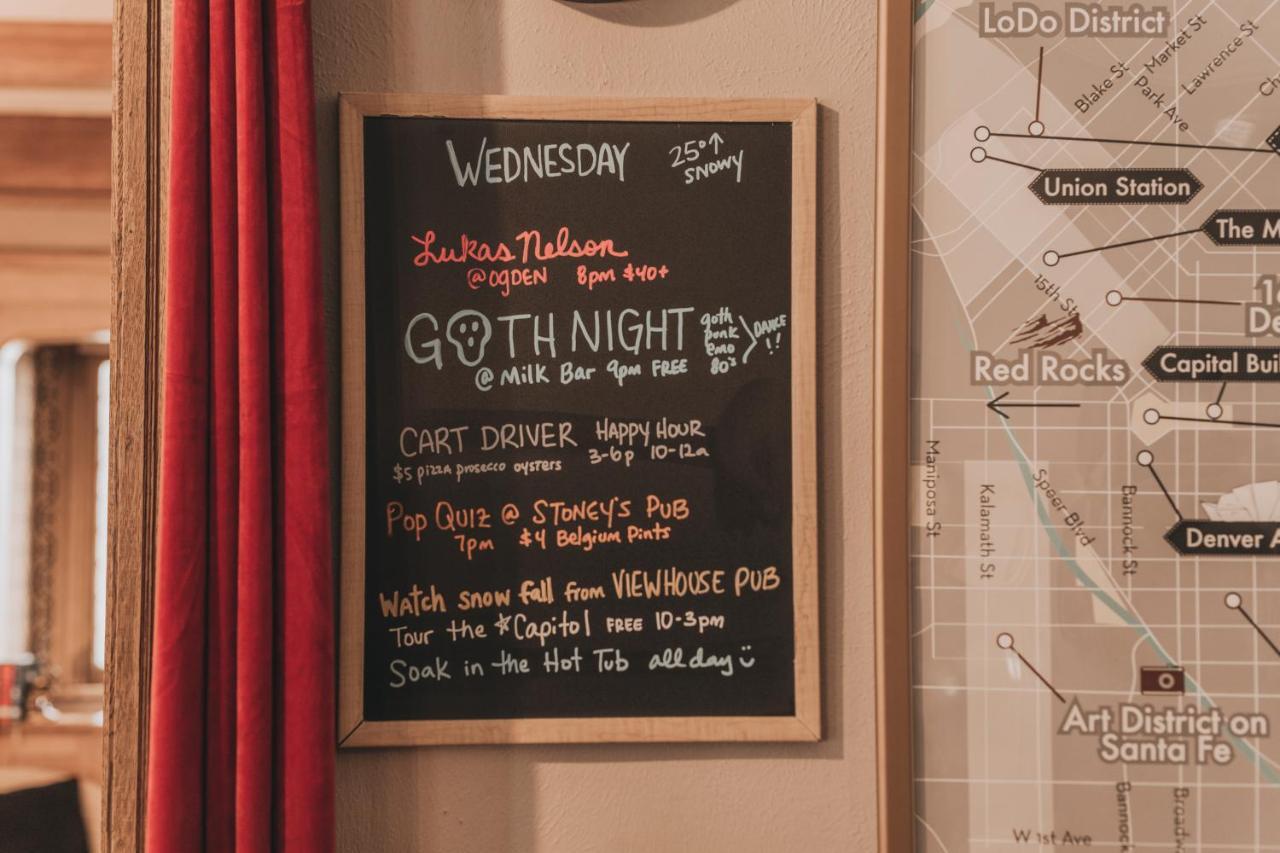 WEDNESDAY
25° ↑
SNOWY
Lukas Nelson
@ OGDEN 8pm $40+
GOTH NIGHT
goth
punk
emo
80's
DANCE
!!
@ Milk Bar 9pm FREE
CART DRIVER HAPPY HOUR
$5 pizza prosecco oysters 3-6p 10-12a
Pop Quiz @ STONEY'S PUB
7pm $4 Belgium Pints
Watch snow fall from VIEWHOUSE PUB
Tour the *Capitol FREE 10-3pm
Soak in the Hot Tub all day
LoDo District
Market St
Blake St
Park Ave
Lawrence St
Union Station
The M
15th St
Red Rocks
Capital Bui
Mariposa St
Kalamath St
Speer Blvd
Bannock St
Denver A
Art District on
Santa Fe
Bannock
Broadw
W 1st Ave